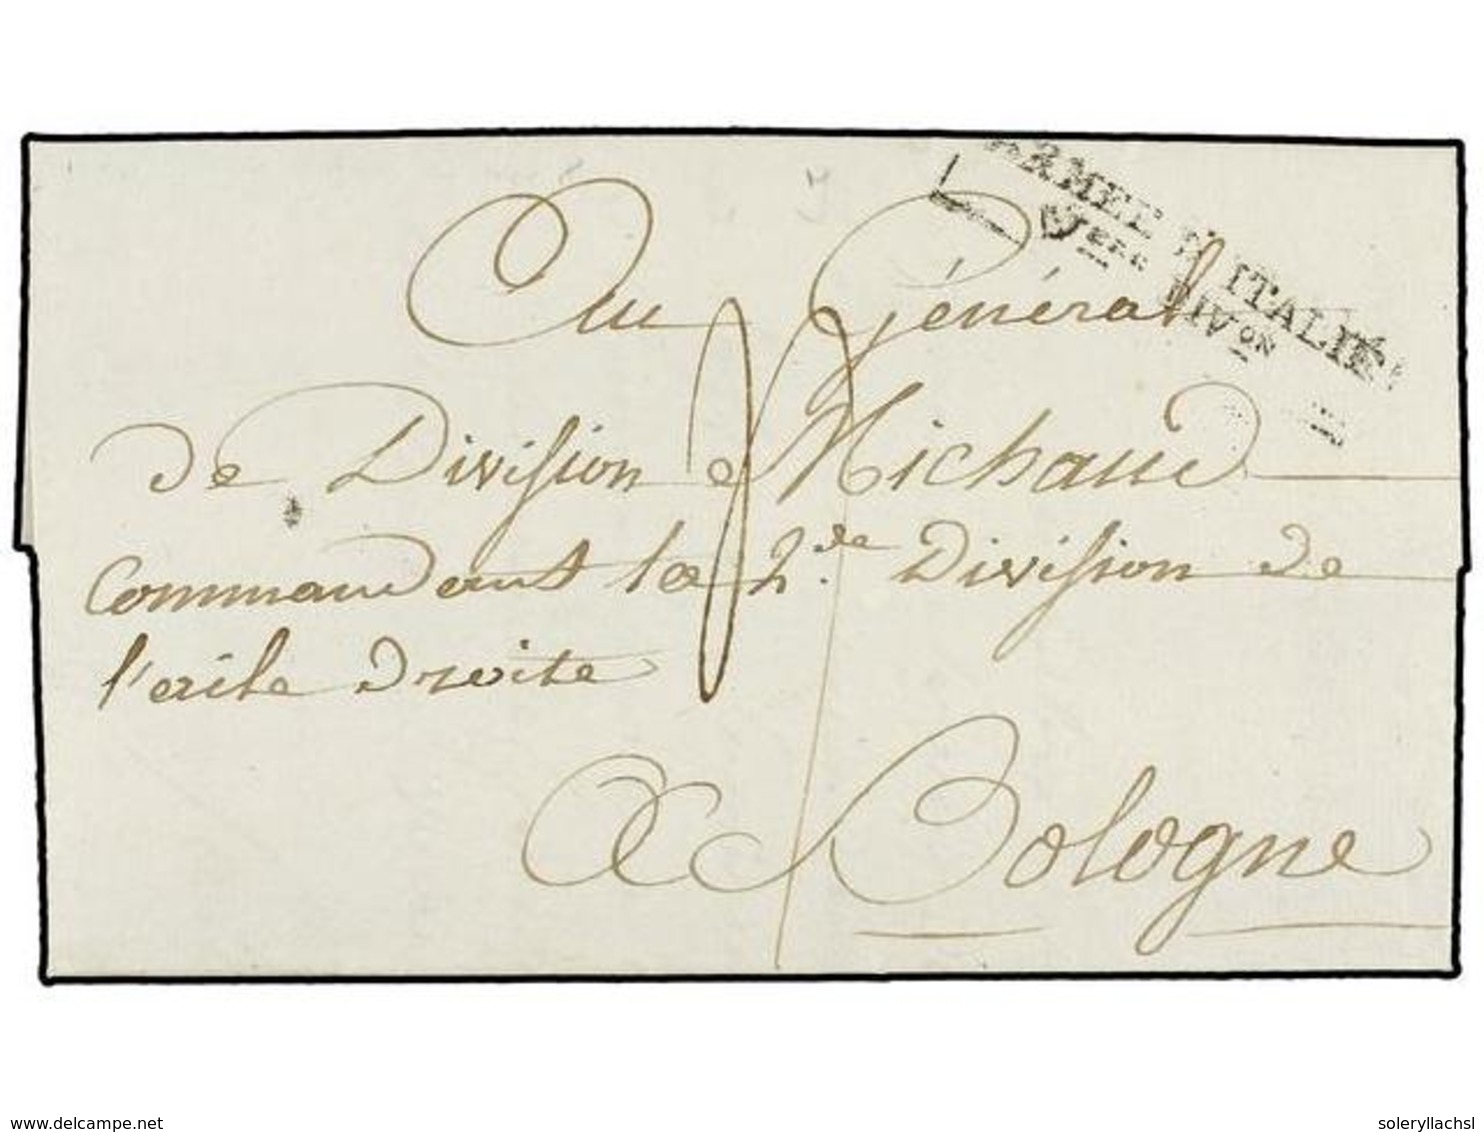 ARMEE D'ITALIE
DIVon
Au Général
de Division Michaud
Commandant la 2.de Division de
l'aile droite
A Bologne
delcampe.net
soleryllachsl